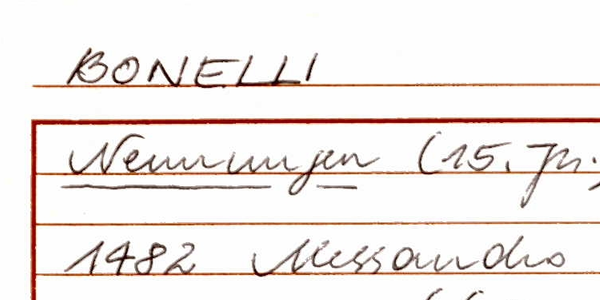 BONELLI
Nennungen (15. Jh.)
1482 Alessandro